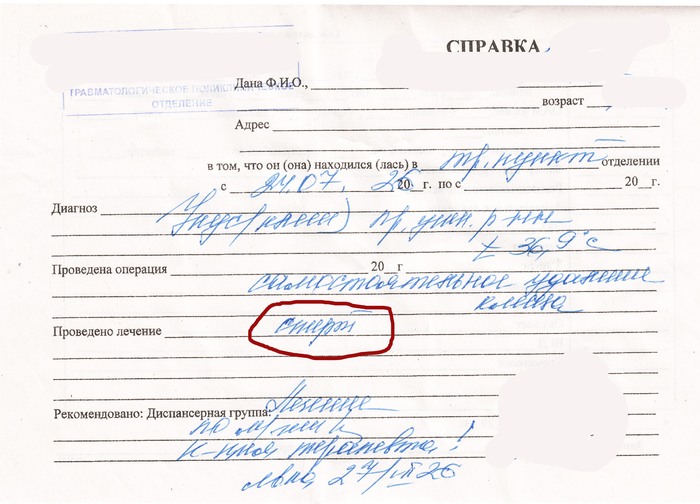 СПРАВКА
ТРАВМАТОЛОГИЧЕСКОЕ ПОЛИКЛИНИЧЕСКОЕ
ОТДЕЛЕНИЕ
Дана Ф.И.О.,
возраст
Адрес
в том, что он (она) находился (лась) в тр. пункт отделении
с 24.07. 26 20 г. по с 20 г.
Диагноз
Укус (клещ) пр.
t 36,9°c
Проведена операция 20 г
самостоятельное удаление
клеща
Проведено лечение спирт
Рекомендовано: Диспансерная группа: Лечение
по м/ж
к-ция терапевта!
явка 27/VII 26